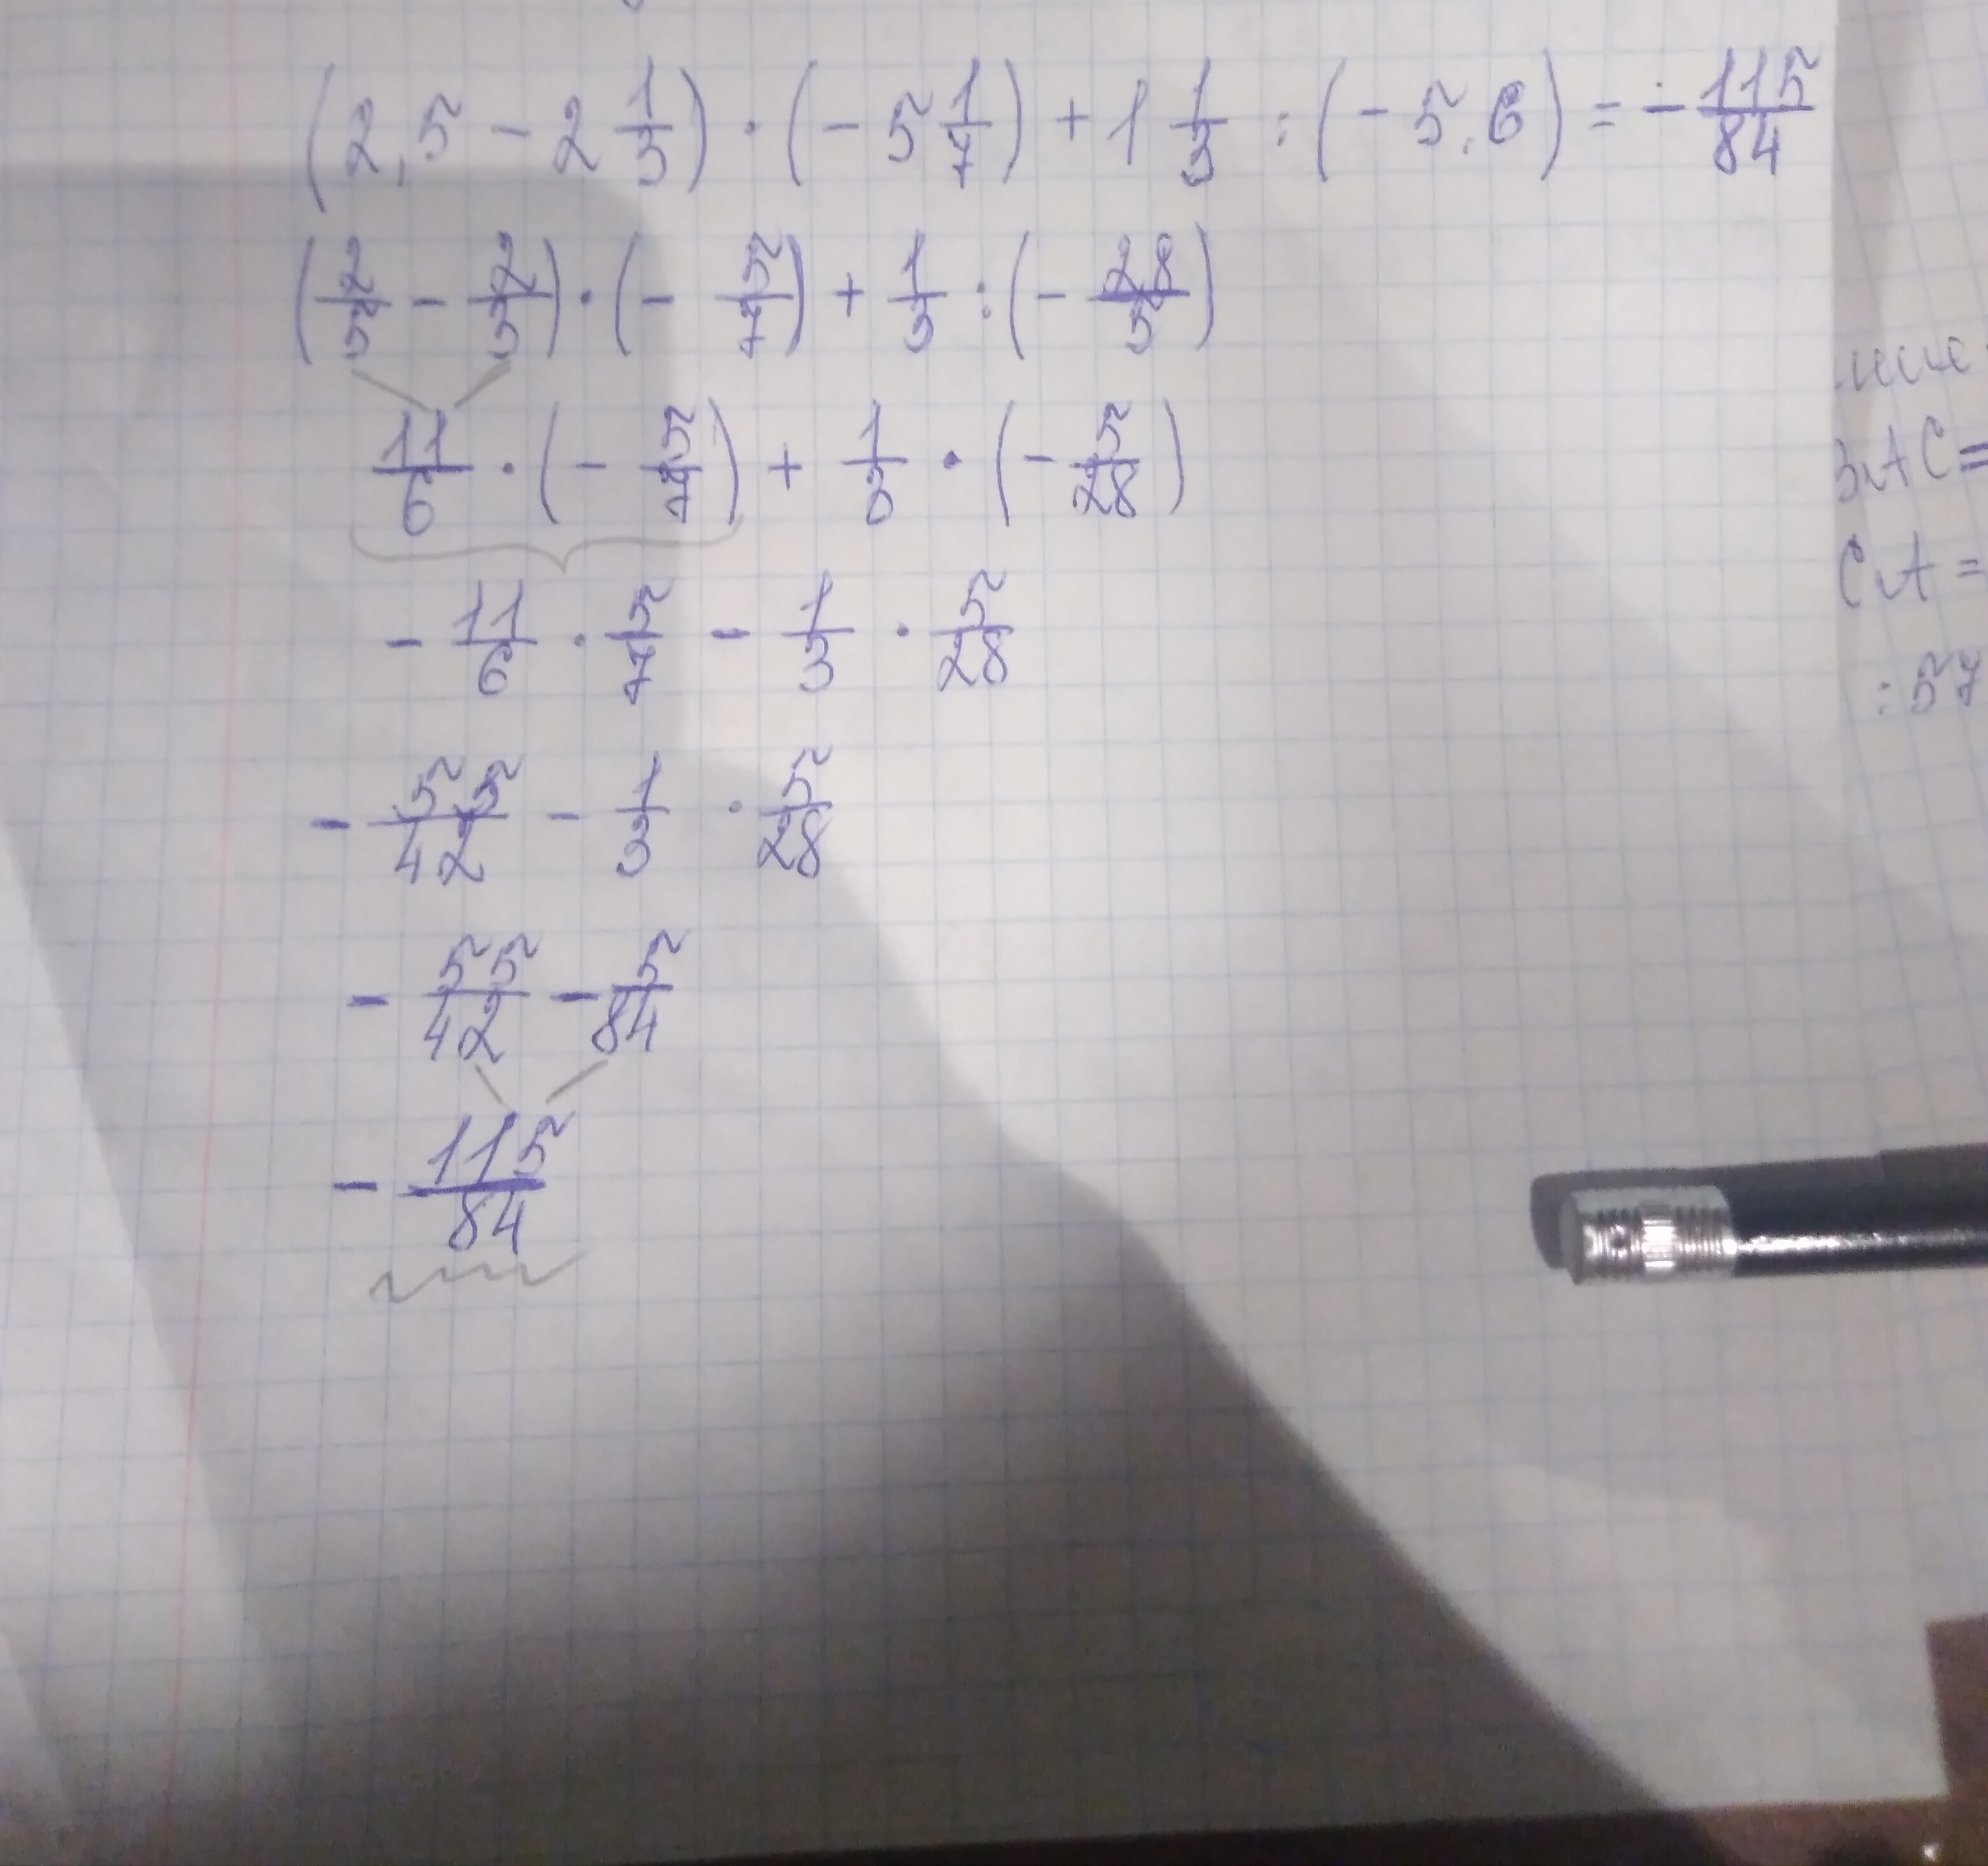 (2,5 - 2 1/3) · (- 5 1/7) + 1 1/3 : (- 5,6) = - 115/84
(2/5 - 2/3) · (- 5/7) + 1/3 : (- 28/5)
11/6 · (- 5/7) + 1/3 · (- 5/28)
- 11/6 · 5/7 - 1/3 · 5/28
- 55/42 - 1/3 · 5/28
- 55/42 - 5/84
- 115/84
АС=
СА=
:57